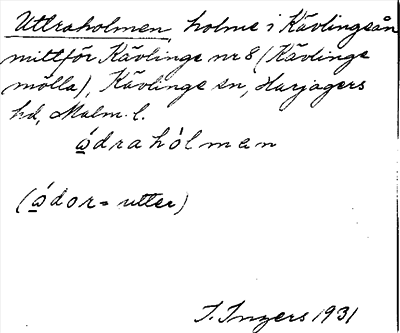 Uttraholmen, holme i Kävlingeån
mittför Kävlinge nr 8 (Kävlinge
mölla), Kävlinge sn, Harjagers
hd, Malm. l.
ǫ́drahòlman
(ǫ́dor = utter)
I. Ingers 1931